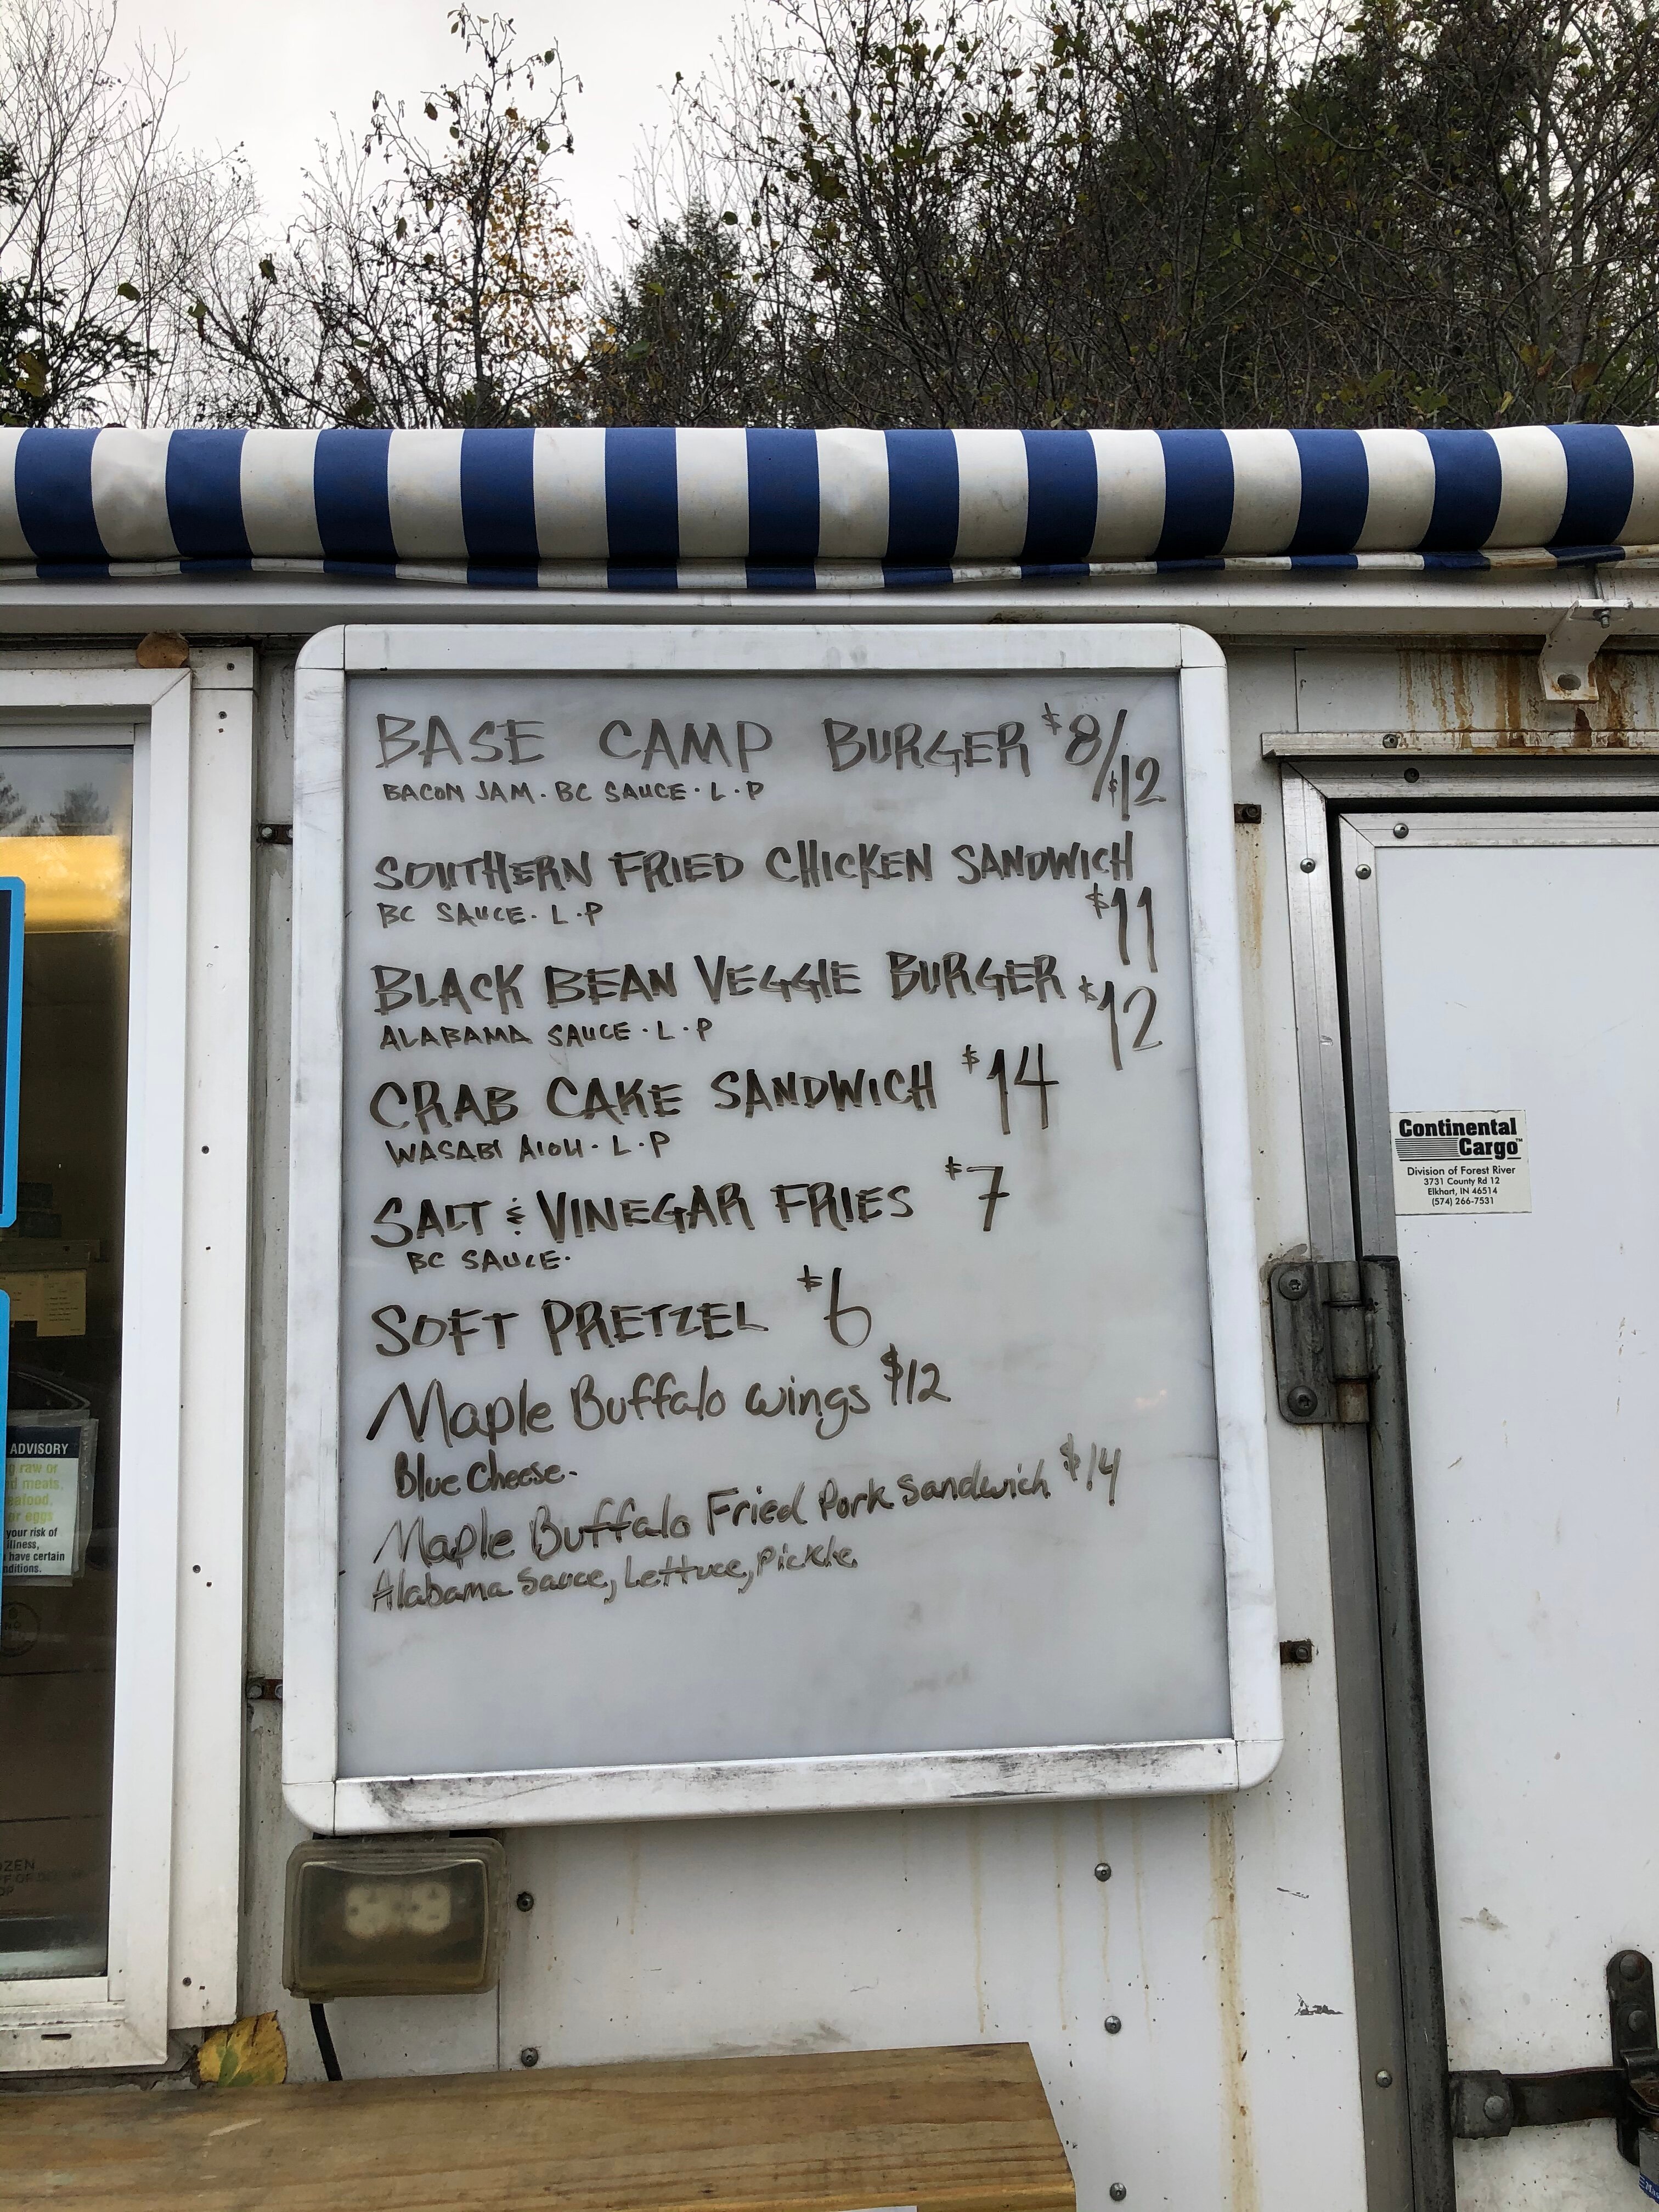 BASE CAMP BURGER $8/$12
BACON JAM. BC SAUCE. L. P
SOUTHERN FRIED CHICKEN SANDWICH
$11
BC SAUCE. L. P
BLACK BEAN VEGGIE BURGER $12
ALABAMA SAUCE. L. P
CRAB CAKE SANDWICH $14
WASABI AIOLI. L. P
SALT & VINEGAR FRIES $7
BC SAUCE.
SOFT PRETZEL $6
Maple Buffalo wings $12
Blue Cheese.
Maple Buffalo Fried Pork Sandwich $14
Alabama Sauce, Lettuce, Pickle
Continental
Cargo™
Division of Forest River
3731 County Rd 12
Elkhart, IN 46514
(574) 266-7531
ADVISORY
raw or
meats,
or eggs
your risk of
illness,
have certain